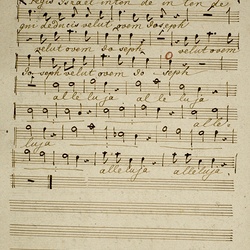 Regis Israel in ton de in ton de
qui deducis velut ovem Joseph
velut ovem Jo seph velut ovem
Jo seph velut ovem Jo seph
alle luja al le luja
alle
luja alle luja
alle luja alleluja.